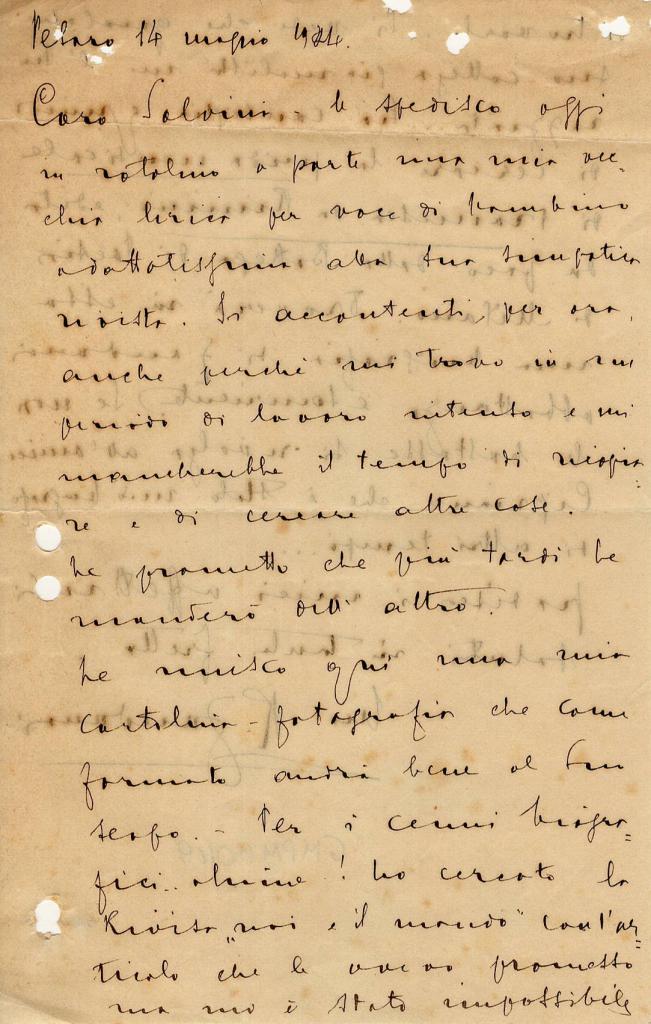 Pesaro 14 maggio 1924.
Caro Salvini - le spedisco oggi
in rotolino a parte una mia vec-
chia lirica per voce di bambino
adattatissima alla sua simpatica
rivista. Si accontenti, per ora,
anche perchè mi trovo in un
periodo di lavoro intenso e mi
mancherebbe il tempo di
re e di cercare altre cose.
Le prometto che più tardi le
manderò dell'altro.
Le unisco qui una mia
cartolina-fotografia che come
formato andrà bene al suo
scopo. - Per i cenni biogra=
fici.. ahime! ho cercato la
Rivista "noi e il mondo" coll'ar=
ticolo che le avevo promesso
ma mi è stato impossibile